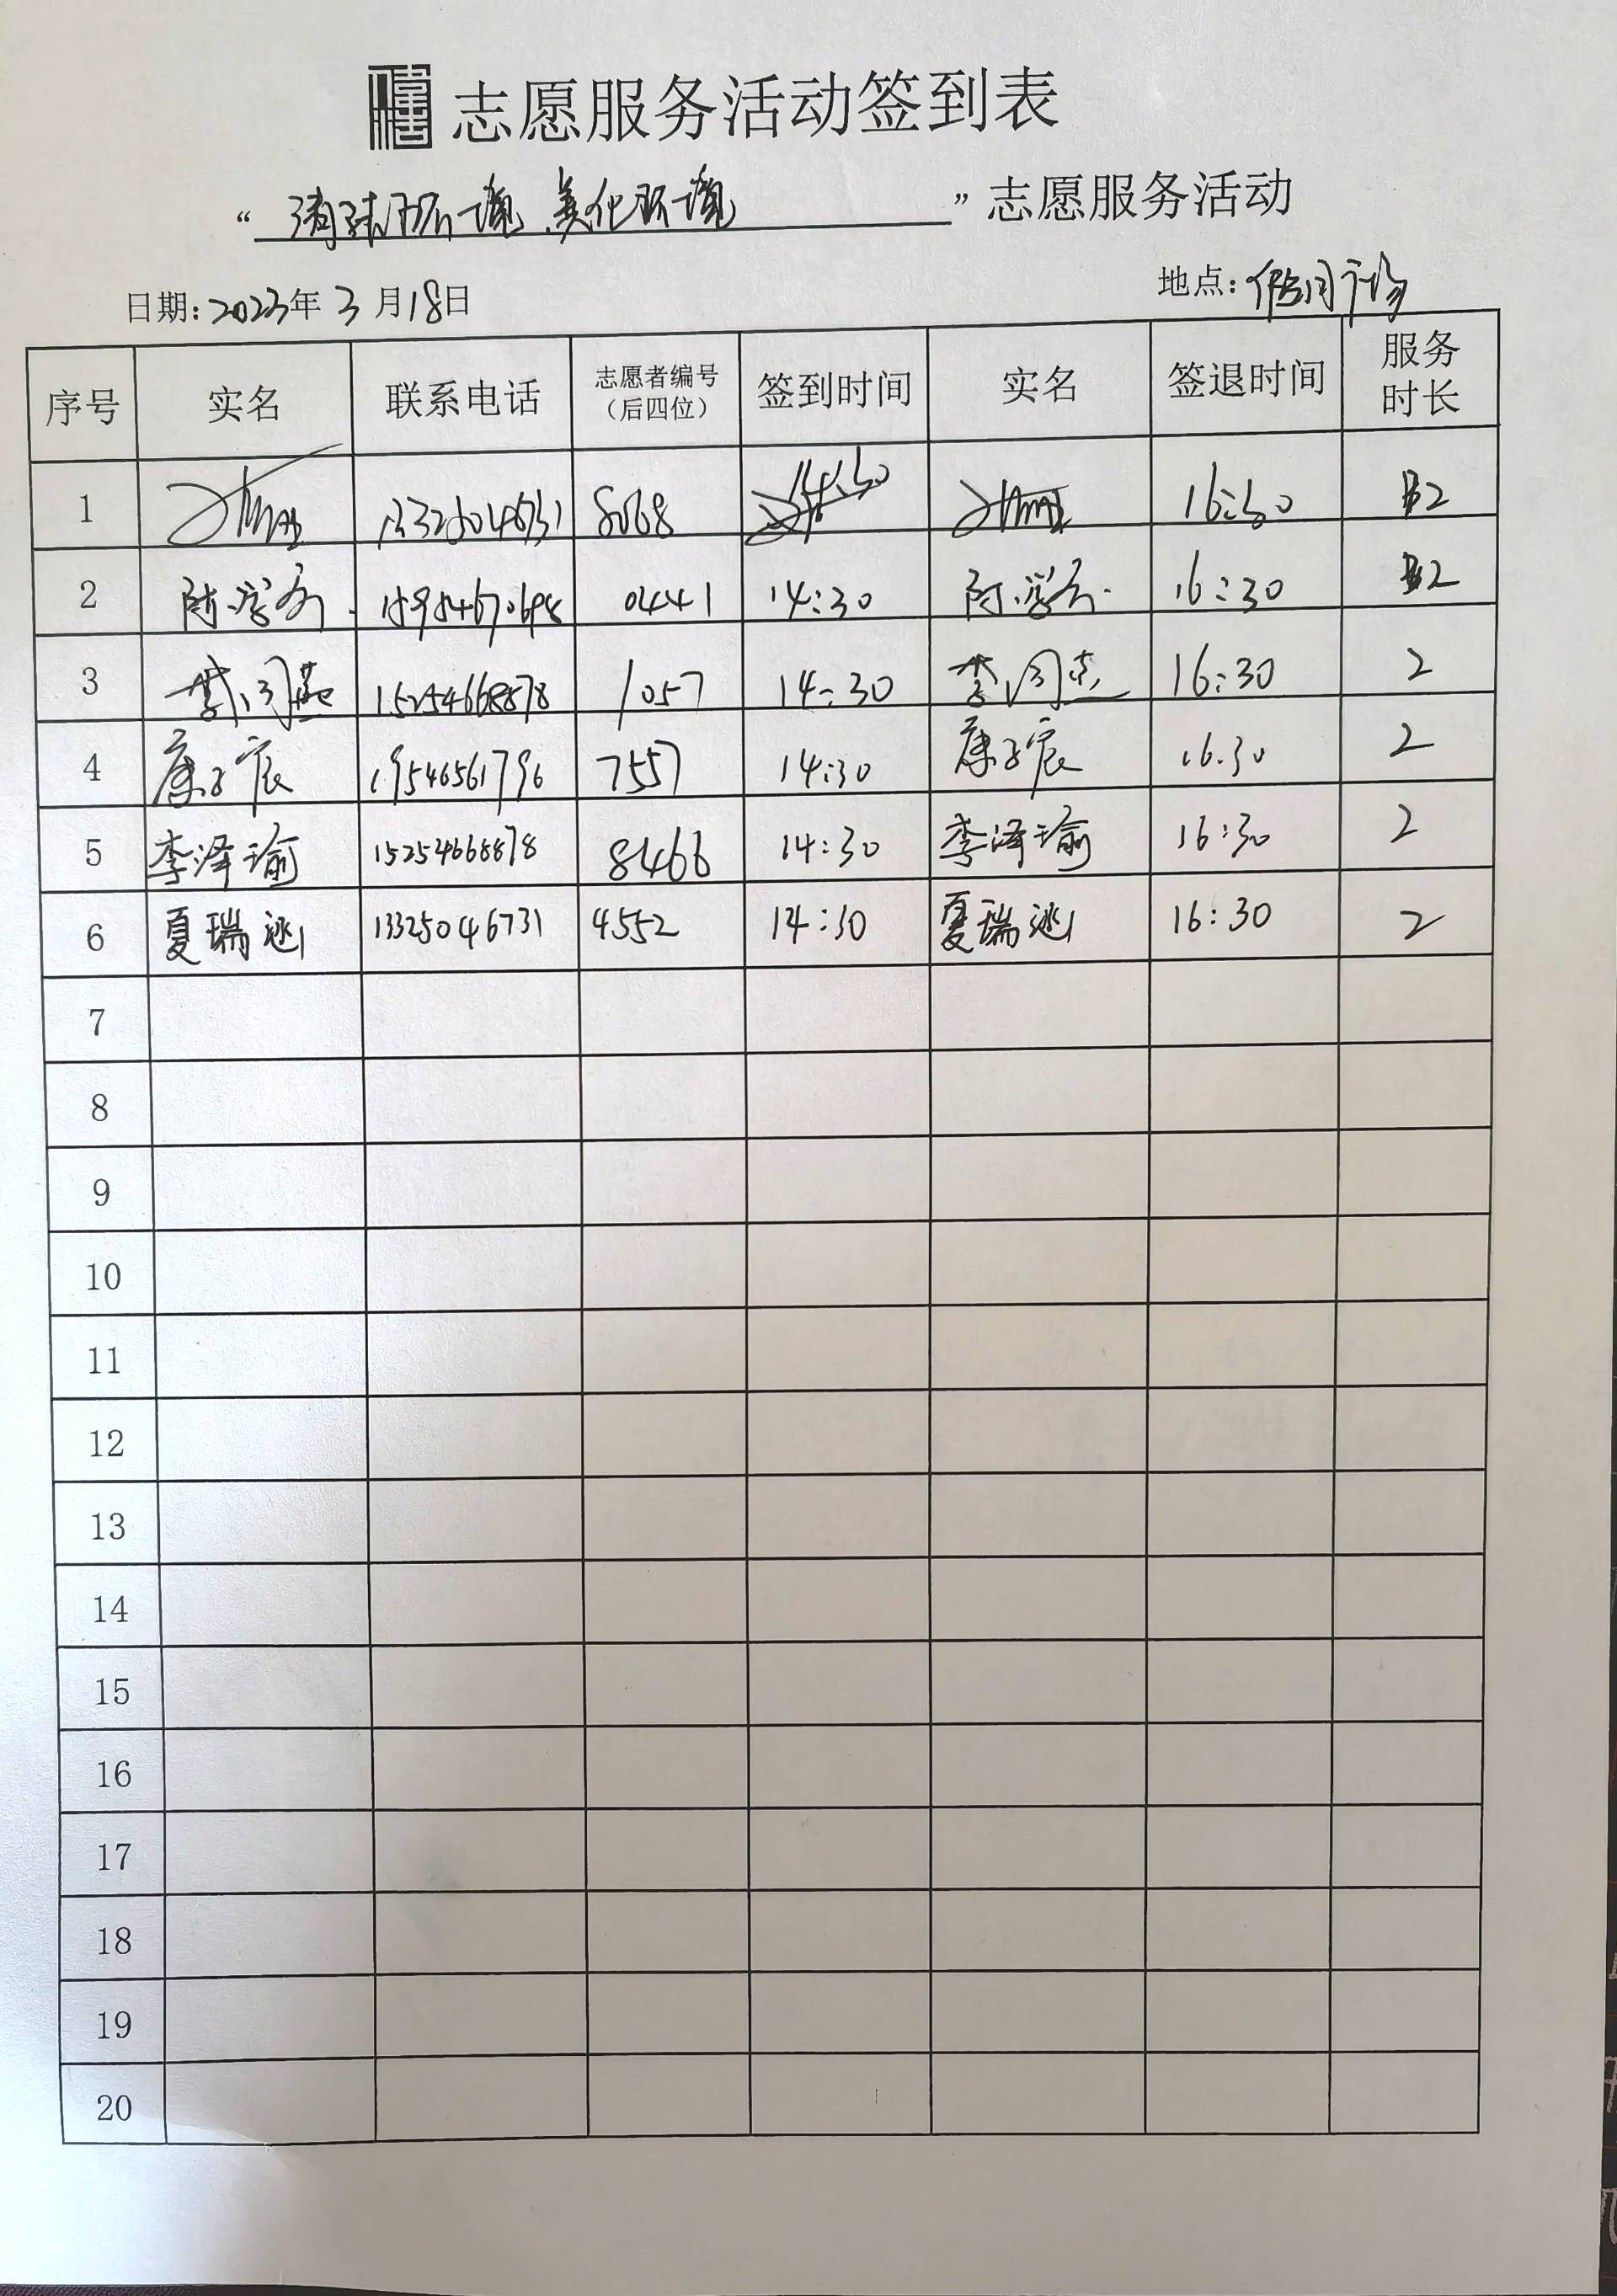 志愿服务活动签到表
“清球环境 美化环境”志愿服务活动
日期:2023年3月18日 地点:信园广场
序号 实名 联系电话 志愿者编号(后四位) 签到时间 实名 签退时间 服务时长
1 13325046731 8068 14:30 16:30 2
2 0441 14:30 16:30 2
3 15254668878 1057 14:30 16:30 2
4 康子宸 19546561796 7557 14:30 康子宸 16:30 2
5 李泽瑜 15254668878 8466 14:30 李泽瑜 16:30 2
6 夏瑞 13325046731 4552 14:30 夏瑞 16:30 2
7
8
9
10
11
12
13
14
15
16
17
18
19
20